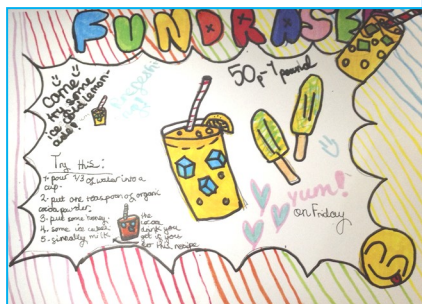 FUNDRAISER
50p-1 pound
come
try some
ice cold lemon-
ade!
Try this:
1. pour 1/3 of water into a
cup.
2. put one teaspoon of organic
cocoa powder.
3. put some honey.
4. some ice cubes
5. finally milk
the
cocoa
drink you
get if you
for this recipe
yum!
on Friday